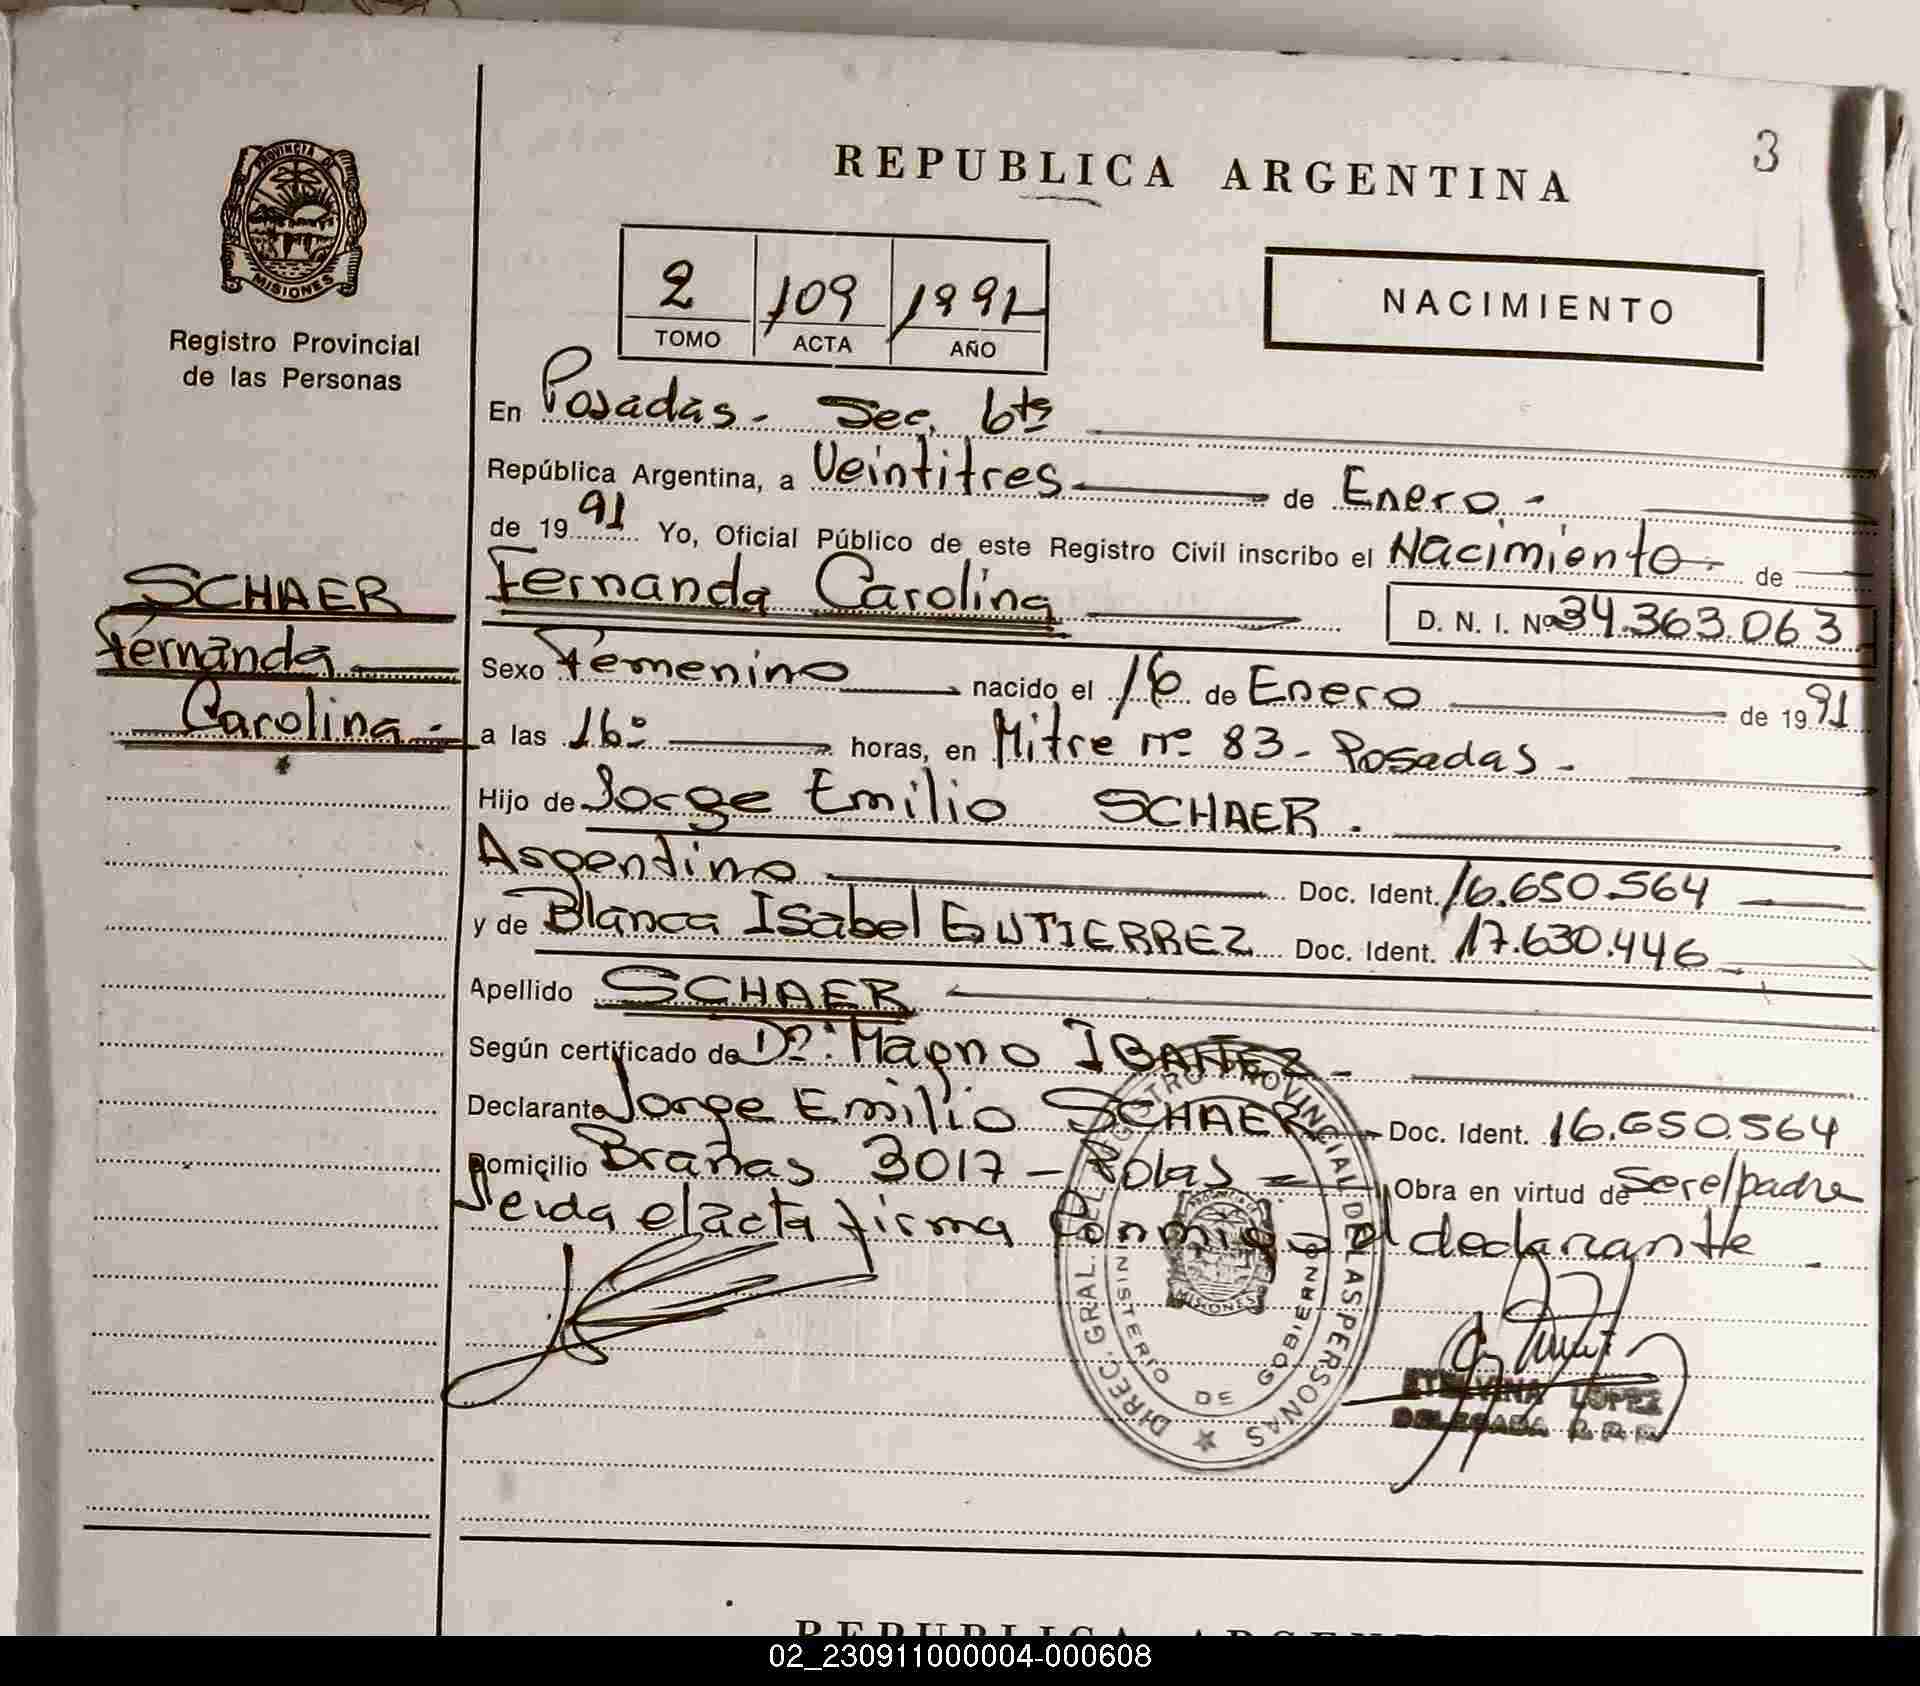 3
REPUBLICA ARGENTINA
PROVINCIA DE
MISIONES
Registro Provincial
de las Personas
2 109 1991
TOMO ACTA AÑO
NACIMIENTO
En Posadas - Sec. 6ta
República Argentina, a Veintitres de Enero.-
de 1991 Yo, Oficial Público de este Registro Civil inscribo el Nacimiento - de
Fernanda Carolina D. N. I. Nº 34.363.063
SCHAER
Fernanda
Carolina.-
Sexo Femenino nacido el 16 de Enero de 1991
a las 16º horas, en Mitre nº 83 - Posadas -
Hijo de Jorge Emilio SCHAER.
Argentino Doc. Ident. 16.650.564
y de Blanca Isabel GUTIERREZ Doc. Ident. 17.630.446
Apellido SCHAER
Según certificado de Dr. Magno IBAÑEZ -
Declarante Jorge Emilio SCHAER - Doc. Ident. 16.650.564
Domicilio Brañas 3017 - Obra en virtud de ser el padre
Leida el acta firma Conmigo el declarante
DIREC. GRAL. DEL REGISTRO PROVINCIAL DE LAS PERSONAS
MINISTERIO DE GOBIERNO
MISIONES
ETELVINA LOPEZ
DELEGADA R.P.P.
REPUBLICA ARGENTINA
02_230911000004-000608